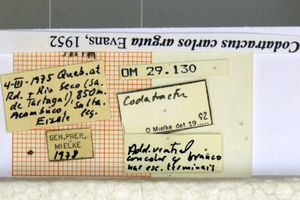 Codatractus carlos arguta Evans, 1952
4-III-1975 Queb. at
Rd. + Rio Seco (Sa.
Rd. de Tartagal), 850m.
Acambuco Salta.
Eisele leg.
OM 29.130
Codatractus
O Mielke det 19.....92
GEN. PREP.
MIELKE
1978
Abd. ventral
concolor y branco
nas esc. terminais